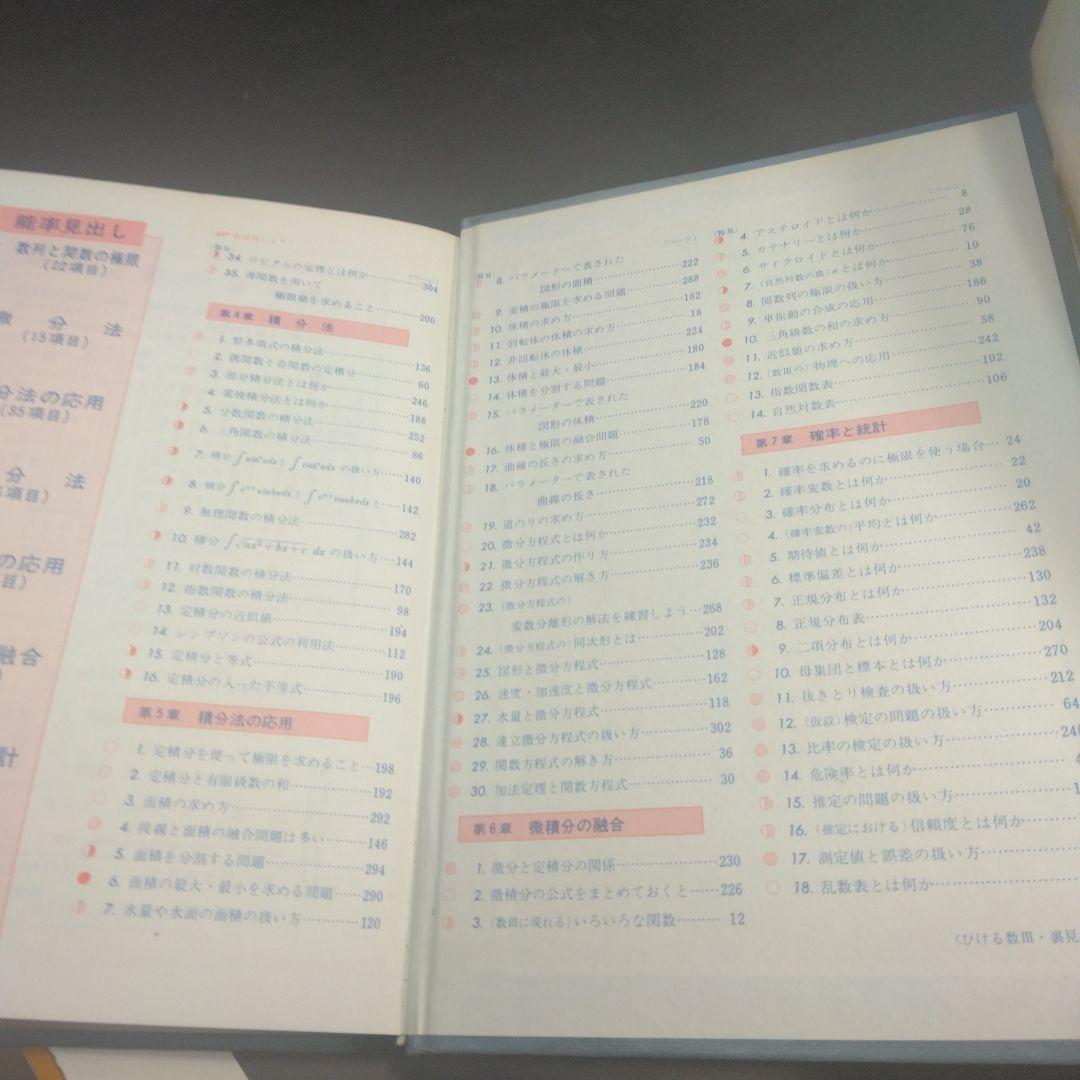 能率見出し
数列と関数の極限
(22項目)
分法
(15項目)
分法の応用
(35項目)
分法
項目)
の応用
目)
融合
計
(ページ)
34. ロピタルの定理とは何か…………304
35. 薄関数を用いて
極限値を求めること………200
第4章 積分法
1. 整多項式の積分法…………136
2. 偶関数と奇関数の定積分…………60
3. 部分積分法とは何か…………246
4. 置換積分法とは何か…………188
5. 分数関数の積分法…………252
6. 三角関数の積分法…………86
7. 積分∫sinⁿxdxと∫cosⁿxdx の扱い方……140
8. 積分∫eᵃˣsinbxdxと∫eᵃˣcosbxdxと……142
9. 無理関数の積分法…………282
10. 積分∫√ax²+bx+c dx の扱い方……144
11. 対数関数の積分法…………170
12. 指数関数の積分法…………98
13. 定積分の近似値…………194
14. シンプソンの公式の利用法…………112
15. 定積分と等式…………190
16. 定積分の入った不等式…………196
第5章 積分法の応用
1. 定積分を使って極限を求めること…198
2. 定積分と有限級数の和…………192
3. 面積の求め方…………292
4. 接線と面積の融合問題は多い………146
5. 面積を分割する問題…………294
6. 面積の最大・最小を求める問題……290
7. 水量や水面の面積の扱い方…………120
(ページ)
8. パラメーターで表された
図形の面積…………222
9. 面積の極限を求める問題…………288
10. 体積の求め方…………182
11. 回転体の体積の求め方…………18
12. 非回転体の体積…………224
13. 体積と最大・最小…………180
14. 体積を分割する問題…………184
15. パラメーターで表された
図形の体積…………220
16. 体積と極限の融合問題…………178
17. 曲線の長さの求め方…………50
18. パラメーターで表された
曲線の長さ…………218
19. 道のりの求め方…………272
20. 微分方程式とは何か…………232
21. 微分方程式の作り方…………234
22. 微分方程式の解き方…………236
23. (微分方程式の)
変数分離形の解法を練習しよう…268
24. (微分方程式の)同次形とは…………202
25. 図形と微分方程式…………128
26. 速度・加速度と微分方程式…………162
27. 水量と微分方程式…………118
28. 連立微分方程式の扱い方…………302
29. 関数方程式の解き方…………36
30. 加法定理と関数方程式…………30
第6章 微積分の融合
1. 微分と定積分の関係…………230
2. 微積分の公式をまとめておくと……226
3. (数Ⅲに現れる)いろいろな関数………12
(ページ)
4. アステロイドとは何か…………8
5. カテナリーとは何か…………28
6. サイクロイドとは何か…………76
7. (自然対数の底)eとは何か…………10
8. 関数列の極限の扱い方…………38
9. 単振動の合成の応用…………186
10. 三角級数の和の求め方…………90
11. 近似値の求め方…………58
12. (数Ⅲの)物理への応用…………242
13. 指数関数表…………102
14. 自然対数表…………106
第7章 確率と統計
1. 確率を求めるのに極限を使う場合…24
2. 確率変数とは何か…………22
3. 確率分布とは何か…………20
4. (確率変数の)平均とは何か…………262
5. 期待値とは何か…………42
6. 標準偏差とは何か…………238
7. 正規分布とは何か…………130
8. 正規分布表…………132
9. 二項分布とは何か…………204
10. 母集団と標本とは何か…………270
11. 抜きとり検査の扱い方…………212
12. (仮説)検定の問題の扱い方…………64
13. 比率の検定の扱い方…………24
14. 危険率とは何か…………
15. 推定の問題の扱い方…………1
16. (推定における)信頼度とは何か…………
17. 測定値と誤差の扱い方…………
18. 乱数表とは何か…………
〈ひける数Ⅲ・裏見